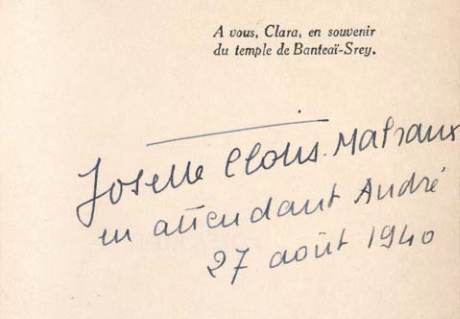 A vous, Clara, en souvenir
du temple de Banteaï-Srey.
Josette Clotis-Malraux
en attendant André
27 août 1940